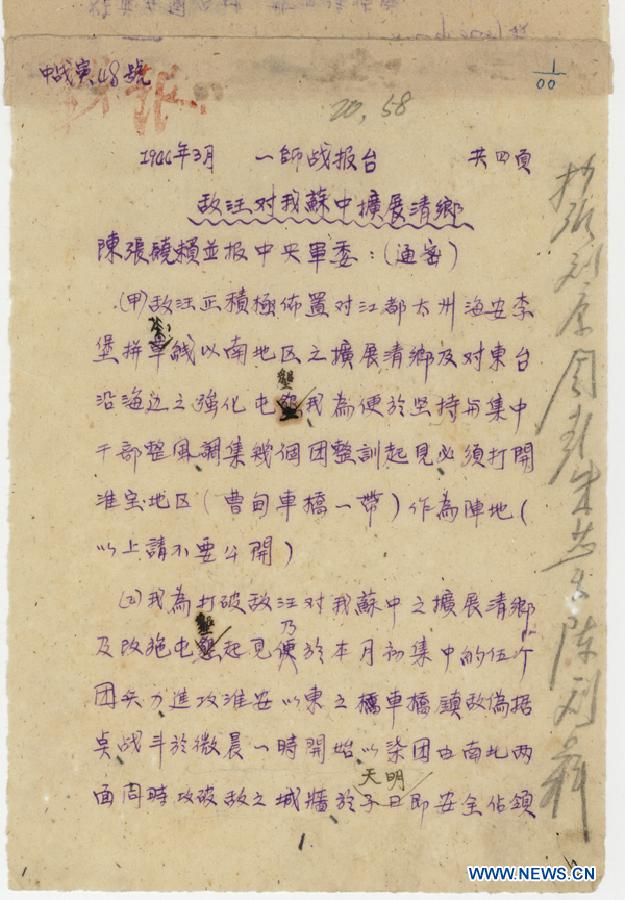 中战寅48號
1/00
20,58
1946年3月 一師战报台 共四頁
敌汪对我蘇中擴展清鄉
陳張饒賴並报中央軍委：(通密)
(甲)敌汪正積極佈置对江都太州海安李
堡拼線以南地区之擴展清鄉及对東台
沿海边之强化屯墾我為便於坚持与集中
干部整風調集幾個团整訓起見必須打開
淮宝地区(曹甸車橋一帶)作為陣地(
以上請不要公開)
我為打破敌汪对我蘇中之擴展清鄉
及改施屯墾起見乃便於本月初集中的伍个
团兵力進攻淮安以東之車橋鎮敌偽据
奌战斗於微晨一時開始以柒团由南北两
面同時攻破敌之城牆於天明即安全佔領
1
WWW.NEWS.CN